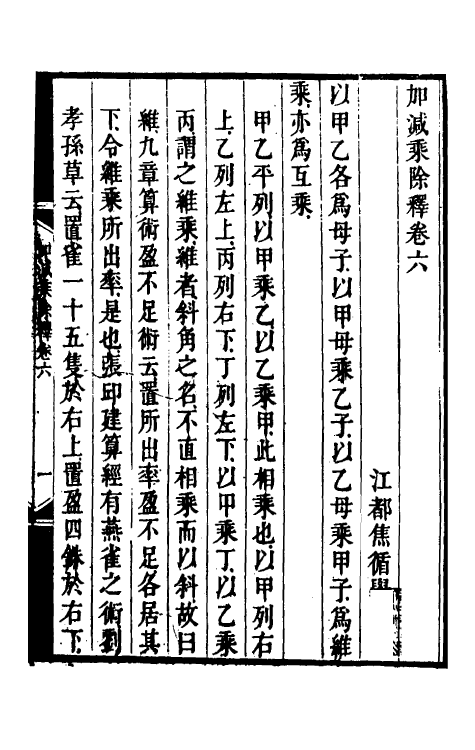 加減乘除釋卷六
江都焦循學
以甲乙各爲母子以甲母乘乙子以乙母乘甲子爲維
乘亦爲互乘
甲乙平列以甲乘乙以乙乘甲此相乘也以甲列右
上乙列左上丙列右下丁列左下以甲乘丁以乙乘
丙謂之維乘維者斜角之名不直相乘而以斜故曰
維九章算術盈不足術云置所出率盈不足各居其
下令維乘所出率是也張邱建算經有燕雀之術劉
孝孫草云置雀一十五隻於右上置盈四銖於右下
加減乘除釋卷六
一